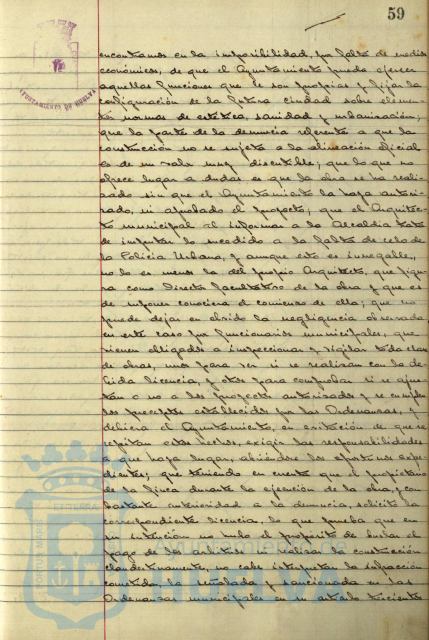 59
AYUNTAMIENTO DE HUELVA
encontramos en la imposibilidad, por falta de medios
económicos, de que el Ayuntamiento pueda ejercer
aquellas funciones que le son propias y fijar la
configuración de la futura ciudad sobre elemen-
tos normas de estética, sanidad y urbanización;
que la parte de la denuncia referente a que la
construcción no se sujeta a la alineación oficial
es de un valor muy discutible; que lo que no
ofrece lugar a dudas es que la obra se ha reali-
zado sin que el Ayuntamiento la haya autori-
zado, ni aprobado el proyecto; que el Arquitec-
to municipal al informar a la Alcaldía trata
de imputar lo sucedido a la falta de celo de
la Policía Urbana, y aunque esto es innegable,
no lo es menos la del propio Arquitecto, que figu-
ra como Director facultativo de la obra y que es
de suponer conociera el comienzo de ella; que no
puede dejar en olvido la negligencia observada
en este caso por funcionarios municipales, que
vienen obligados a inspeccionar y vigilar toda clase
de obras, unos para ver si se realizan con la de-
bida licencia, y otros para comprobar si se ajus-
tan o no a los proyectos autorizados y se cumplen
los preceptos establecidos por las Ordenanzas, y
debiera el Ayuntamiento, en evitación de que se
repitan estos hechos, exigir las responsabilidades
a que haya lugar, abriendo los oportunos expe-
dientes; que teniendo en cuenta que el propietario
de la finca durante la ejecución de la obra, y con
bastante anterioridad a la denuncia, solicitó la
correspondiente licencia, lo que prueba que en
su intención no hubo el propósito de burlar el
pago de los arbitrios ni realizar la construcción
clandestinamente, no cabe interpretar la infracción
cometida, la señalada y sancionada en las
Ordenanzas municipales en su artículo trescientos
PORTUS MARIS ET TERRAE CUSTODIA